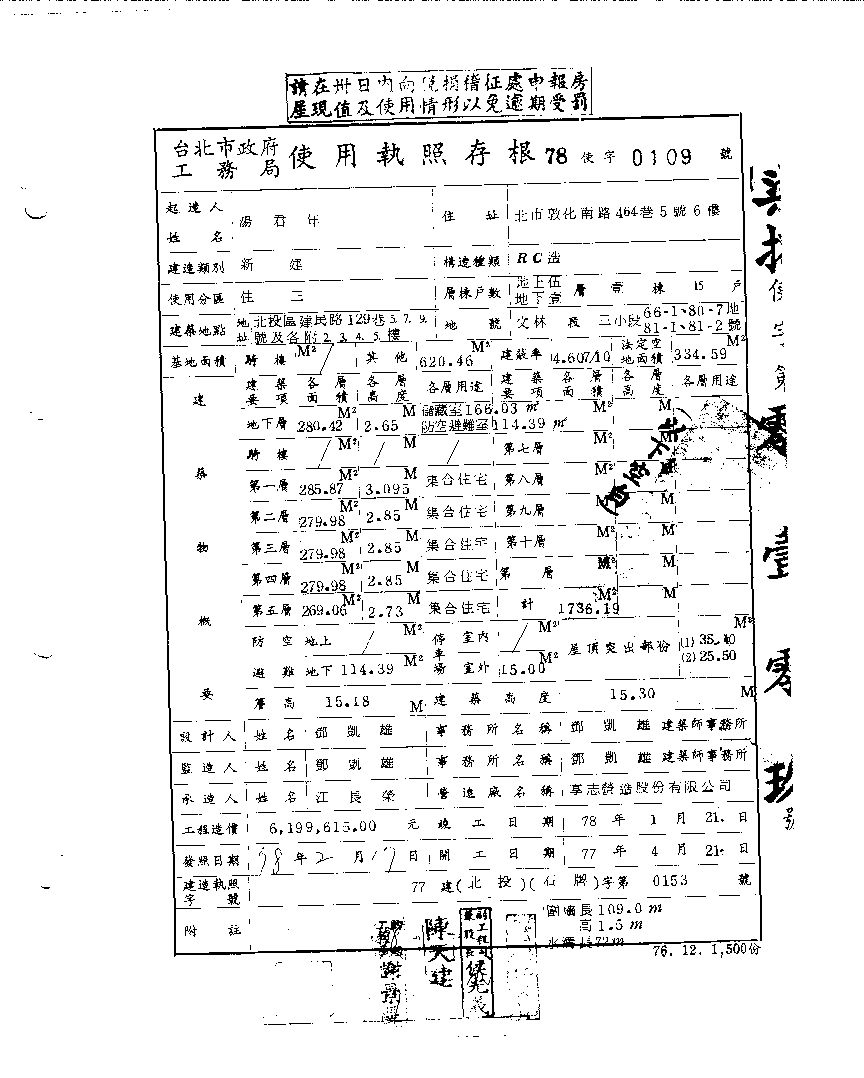 請在卅日內向稅捐稽征處申報房
屋現值及使用情形以免逾期受罰
台北市政府
工務局 使用執照存根 78 使字 0109 號
起造人
姓名 湯君年 住址 北市敦化南路464巷5號6樓
建造類別 新建 構造種類 RC造
使用分區 住三 層棟戶數 地上伍 地下壹 層 壹 棟 15 戶
建築地點 地址 北投區建民路129巷5.7.9.號及各附2.3.4.5.樓 地號 文林段三小段66-1、80-7地81-1、81-2號
基地面積 騎樓 / M² 其他 620.46 M² 建蔽率 4.607/10 法定空地面積 334.59 M²
建築物概要
建築要項 各層面積 各層高度 各層用途 建築要項 各層面積 各層高度 各層用途
地下層 280.42 M² 2.65 M 儲藏室166.03 m² 防空避難室114.39 m² M² M
騎樓 / M² / M / 第七層 M² M
第一層 285.87 M² 3.095 M 集合住宅 第八層 M² M
第二層 279.98 M² 2.85 M 集合住宅 第九層 M² M
第三層 279.98 M² 2.85 M 集合住宅 第十層 M² M
第四層 279.98 M² 2.85 M 集合住宅 第 層 M² M
第五層 269.06 M² 2.73 M 集合住宅 計 1736.19 M² M
防空避難 地上 / M² 停車場 室內 / M² 屋頂突出部份 (1)35.40 M²
地下 114.39 M² 室外 15.00 M² (2)25.50
簷高 15.18 M 建築高度 15.30 M
設計人 姓名 鄧凱雄 事務所名稱 鄧凱雄建築師事務所
監造人 姓名 鄧凱雄 事務所名稱 鄧凱雄建築師事務所
承造人 姓名 江長榮 營造廠名稱 享志營造股份有限公司
工程造價 6,199,615.00 元 竣工日期 78 年 1 月 21. 日
發照日期 78年2月17日 開工日期 77 年 4 月 21. 日
建造執照字號 77 建(北投)(石牌)字第 0153 號
附註 圍牆長109.0 m
高1.5 m
水溝長72m
76.12.1,500份
陳天建
使字第零壹零玖號